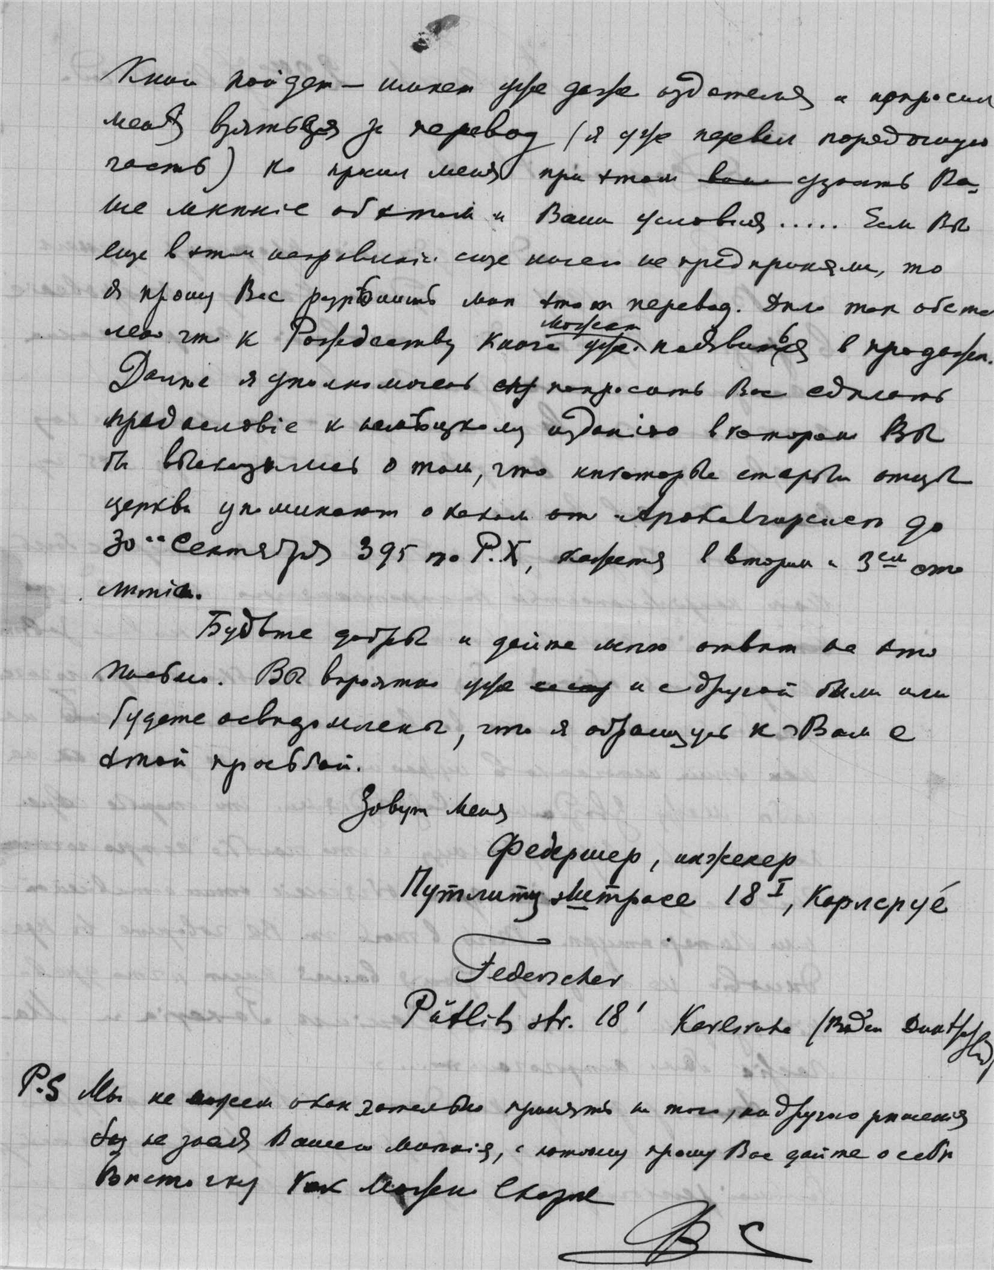 Книга пойдет — имеет уже даже издателя и попросил
меня взяться за перевод (я уже перевел порядочную
часть) но просил меня при этом узнать Ва-
ше мнѣніе об этом и Ваши условія ..... Если Вы
еще в этом направленіи еще ничего не предприняли, то
я прошу Вас разрѣшить мнѣ этот перевод. Дѣло так обста
лено что к Рождеству книга уже может появиться в продаже.
Далѣе я уполномочен попросить Вас сдѣлать
предисловіе к нѣмѣцкому изданію в котором Вы
бы высказались о том, что нѣкоторые старые отцы
церкви упоминают о каком то Апокалипсисе до
30 Сентября 395 по Р.Х, кажется в втором и 3ем сто
лѣтіи.
Будьте добры и дайте мнѣ отвѣт на это
письмо. Вы вѣроятно уже и с другой были или
будете освѣдомлены, что я обращусь к Вам с
этой просьбой.
Зовут меня
Федершер, инженер
Путлитц штрасе 18 I, Карлсруé
Federscher
Pütlitz str. 18' Karlsruhe (Baden Deutschland)
P.S Мы не можем окончательно принять ни того, ни другого рѣшенія
не зная Вашего мнѣнія, а потому прошу Вас дайте о себѣ
вѣсточку как можно скорѣе